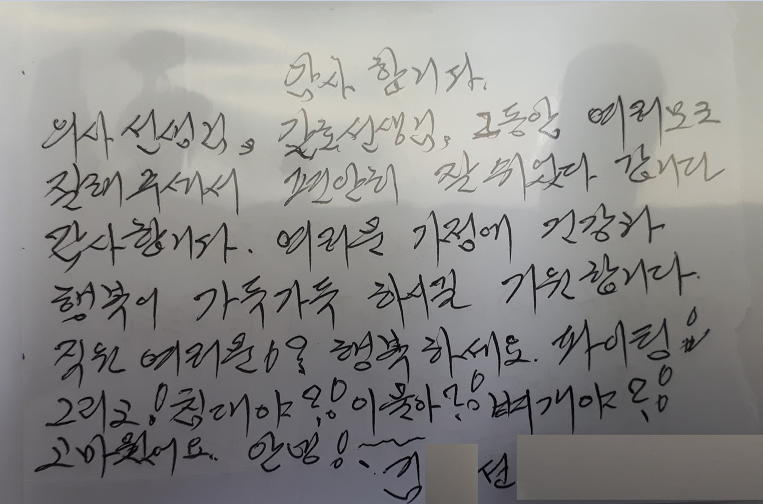 감사 합니다.
의사 선생님, 간호선생님, 그동안 여러모로
잘해 주셔서 편안히 잘 쉬었다 갑니다
감사합니다. 여러분 가정에 건강과
행복이 가득가득 하시길 기원합니다.
직원 여러분들 행복 하세요. 파이팅!!
그리고! 침대야!! 이불아!! 벼개야!!
고마웠어요. 안녕! 김 선